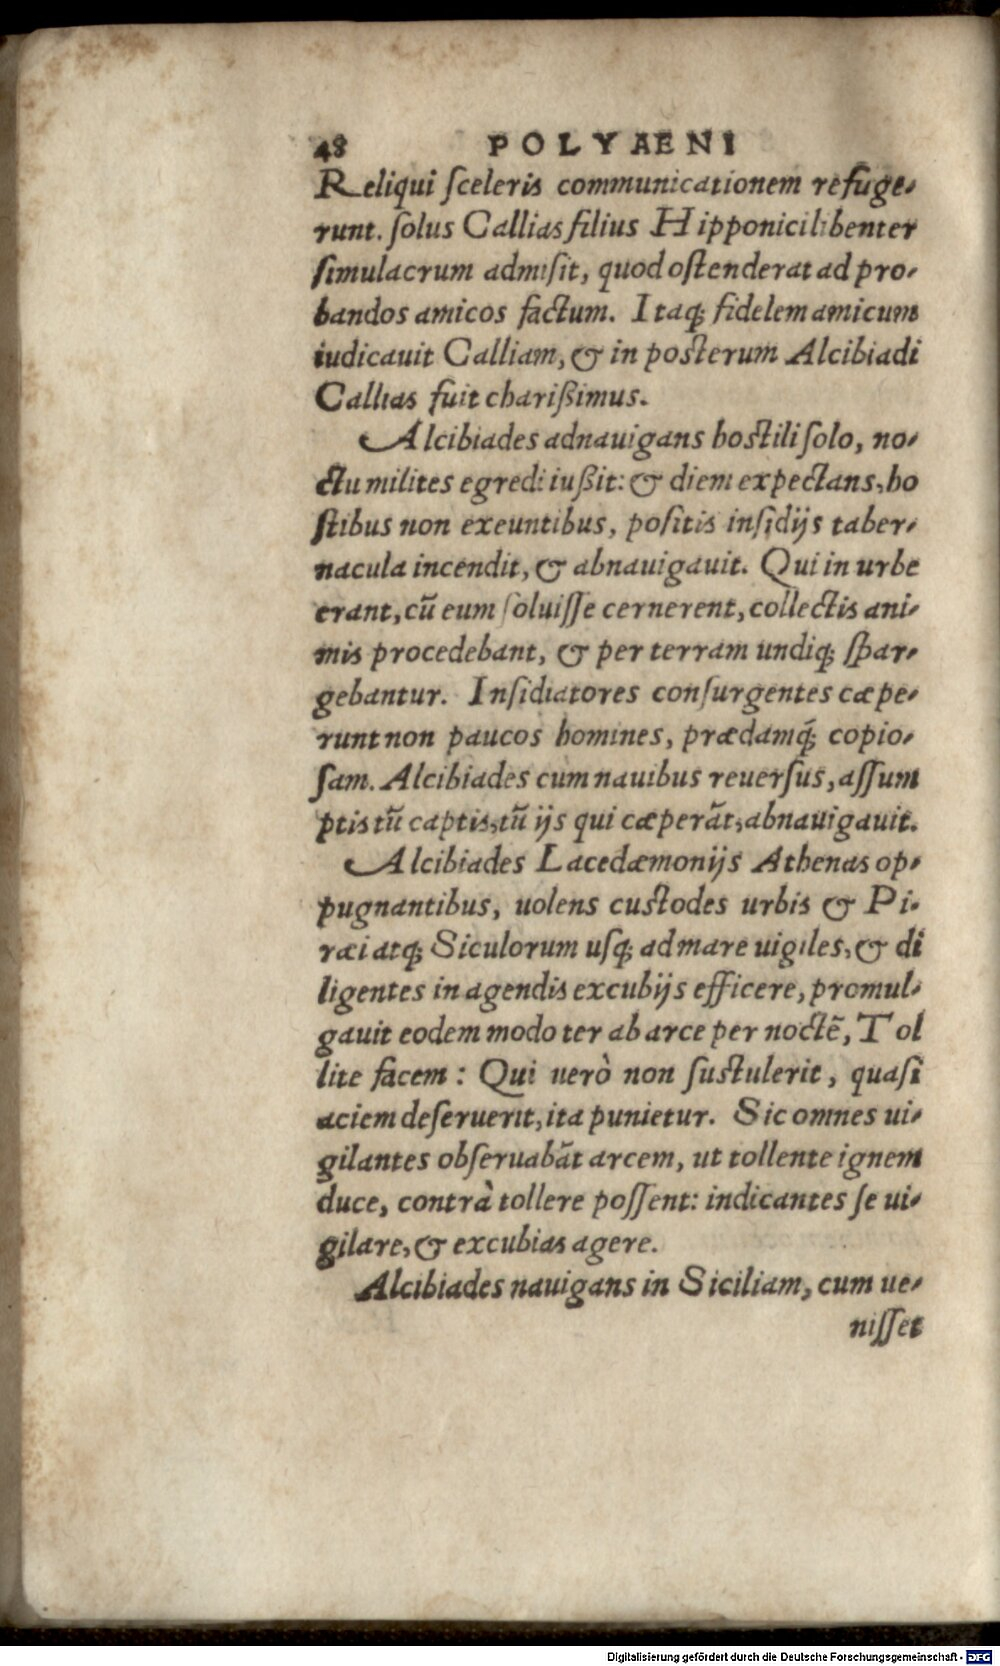 48 POLYAENI
Reliqui ſceleris communicationem refuge-
runt. ſolus Callias filius Hipponici libenter
ſimulacrum admiſit, quod oſtenderat ad pro-
bandos amicos factum. Itaq; fidelem amicum
iudicauit Calliam, & in poſterum Alcibiadi
Callias fuit charißimus.
Alcibiades adnauigans hoſtili ſolo, no-
ctu milites egredi iußit: & diem expectans, ho
ſtibus non exeuntibus, poſitis inſidijs taber-
nacula incendit, & abnauigauit. Qui in urbe
erant, cũ eum ſoluiſſe cernerent, collectis ani-
mis procedebant, & per terram undiq; ſpar-
gebantur. Inſidiatores conſurgentes cæpe-
runt non paucos homines, prædamq́; copio-
ſam. Alcibiades cum nauibus reuerſus, aſſum
ptis tũ captis, tũ ijs qui cæperãt, abnauigauit.
Alcibiades Lacedæmonijs Athenas op-
pugnantibus, uolens cuſtodes urbis & Pi-
ræi atq; Siculorum uſq; ad mare uigiles, & di
ligentes in agendis excubijs efficere, promul-
gauit eodem modo ter ab arce per noctẽ, Tol
lite facem: Qui uerò non ſuſtulerit, quaſi
aciem deſeruerit, ita punietur. Sic omnes ui-
gilantes obſeruabãt arcem, ut tollente ignem
duce, contrà tollere poſſent: indicantes ſe ui-
gilare, & excubias agere.
Alcibiades nauigans in Siciliam, cum ue-
niſſet
Digitalisierung gefördert durch die Deutsche Forschungsgemeinschaft - DFG